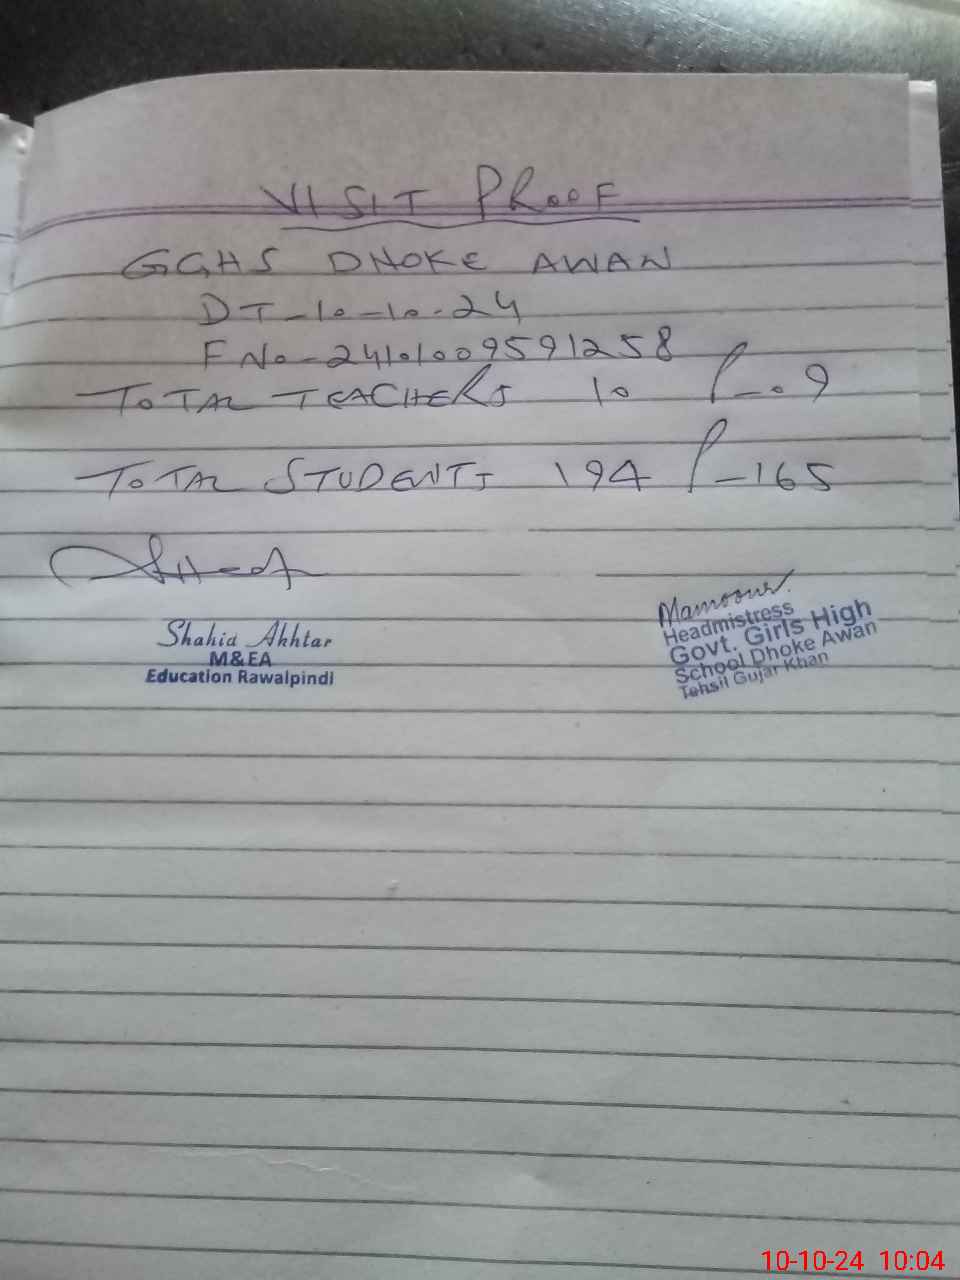 VISIT PROOF
GGHS DHOKE AWAN
DT-10-10-24
F No-24101009591258
TOTAL TEACHERS 10 P-09
TOTAL STUDENTS 194 P-165
Shahid Akhtar
M&EA
Education Rawalpindi
Headmistress
Govt. Girls High
School Dhoke Awan
Tehsil Gujar Khan
10-10-24 10:04